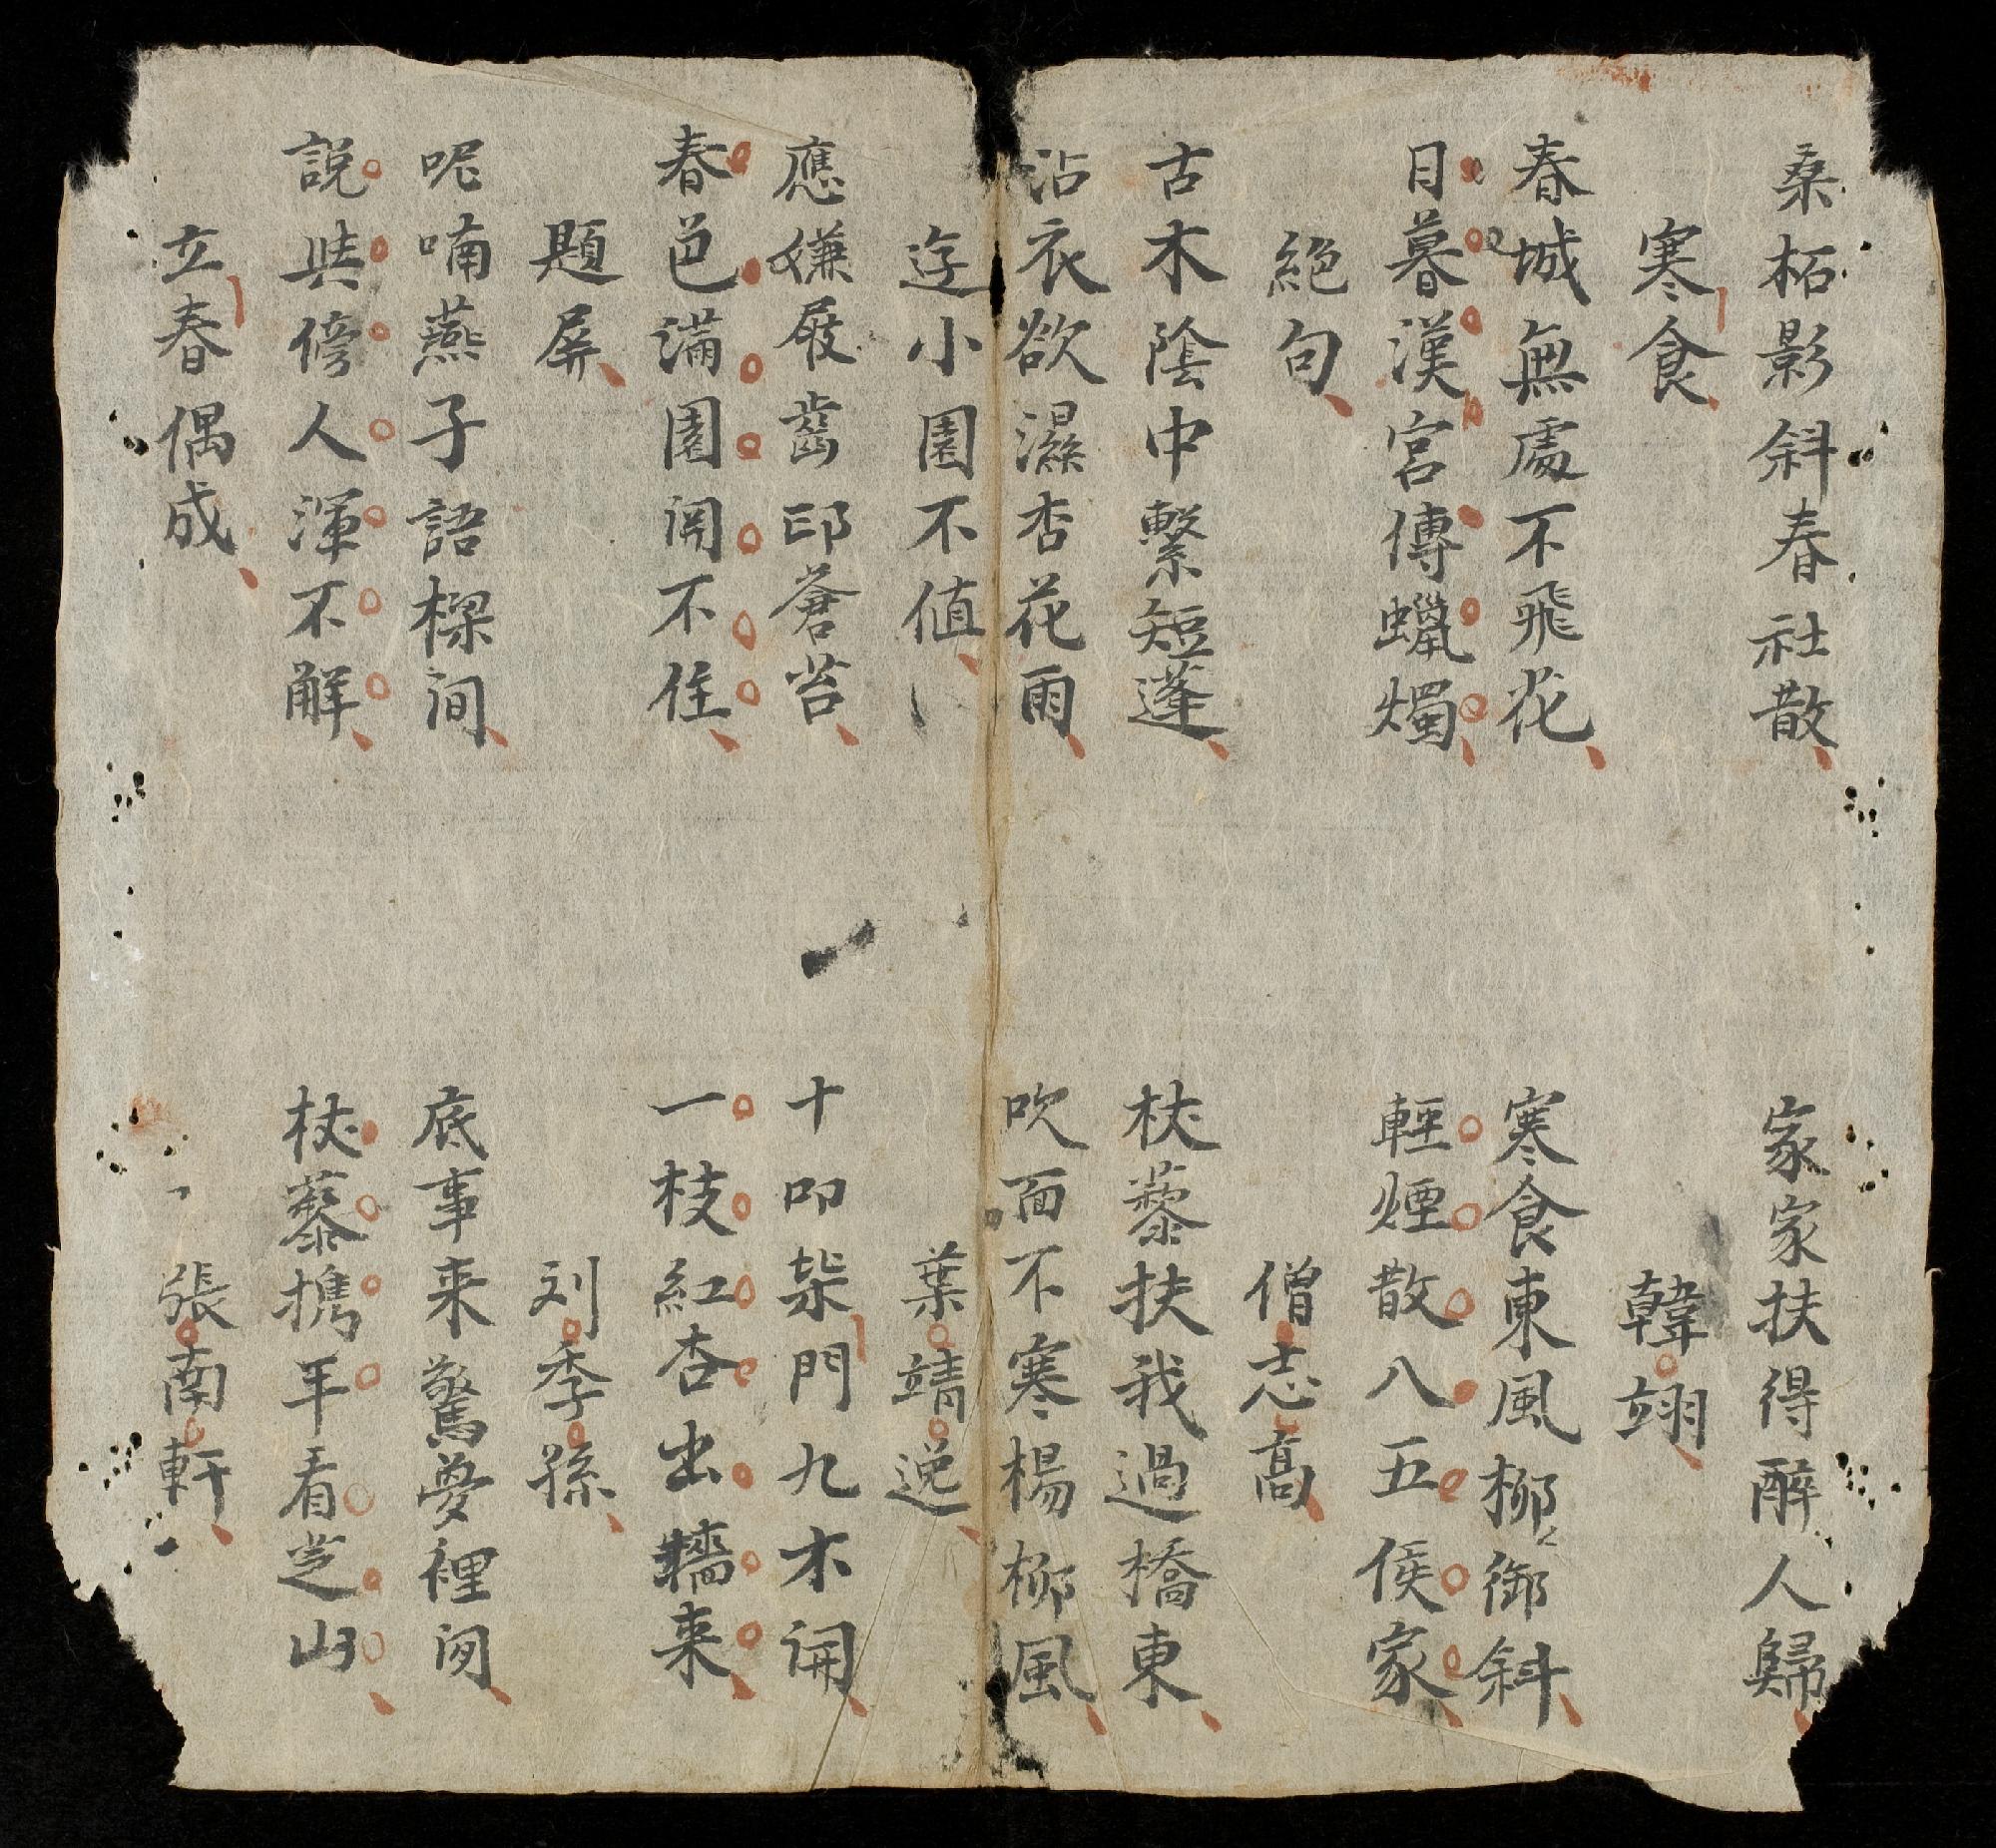 桑柘影斜春社散
家家扶得醉人歸
寒食
韓翊
春城無處不飛花
寒食東風柳御斜
日暮漢宮傳蠟燭
輕煙散八五侯家
絕句
僧志高
古木陰中繫短蓬
杖藜扶我過橋東
沾衣欲濕杏花雨
吹面不寒楊柳風
逰小園不值
葉靖逸
應嫌屐齒印蒼苔
十叩柴門九不開
春色滿園関不住
一枝紅杏出牆来
題屏
刘季孫
呢喃燕子語樑間
底事来驚夢裡閒
說與傍人渾不解
杖藜携年看芝山
立春偶成
張南軒